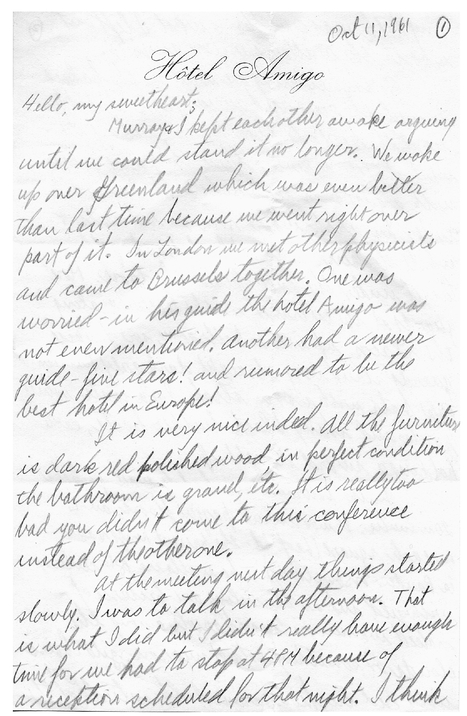 Oct 11, 1961 ①
Hôtel Amigo
Hello, my sweetheart,
Murray & I kept each other awake arguing
until we could stand it no longer. We woke
up over Greenland which was even better
than last time because we went right over
part of it. In London we met other physicists
and came to Brussels together. One was
worried - in his guide the hotel Amigo was
not even mentioned. Another had a newer
guide - five stars! and rumored to be the
best hotel in Europe!
It is very nice indeed. All the furniture
is dark red polished wood in perfect condition
the bathroom is grand, etc. It is really too
bad you didn't come to this conference
instead of the other one.
At the meeting next day things started
slowly. I was to talk in the afternoon. That
is what I did but I didn't really have enough
time for we had to stop at 4PM because of
a reception scheduled for that night. I think